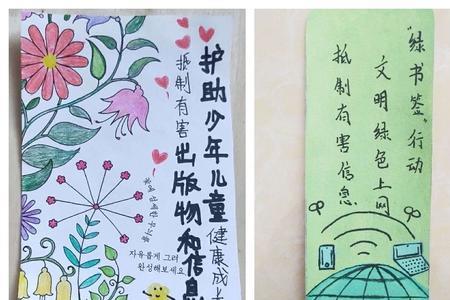 护助少年儿童健康成
抵制有害出版物和信息
자유롭게 그려
완성해보세요
“绿书签”行动
文明绿色上网
抵制有害信息